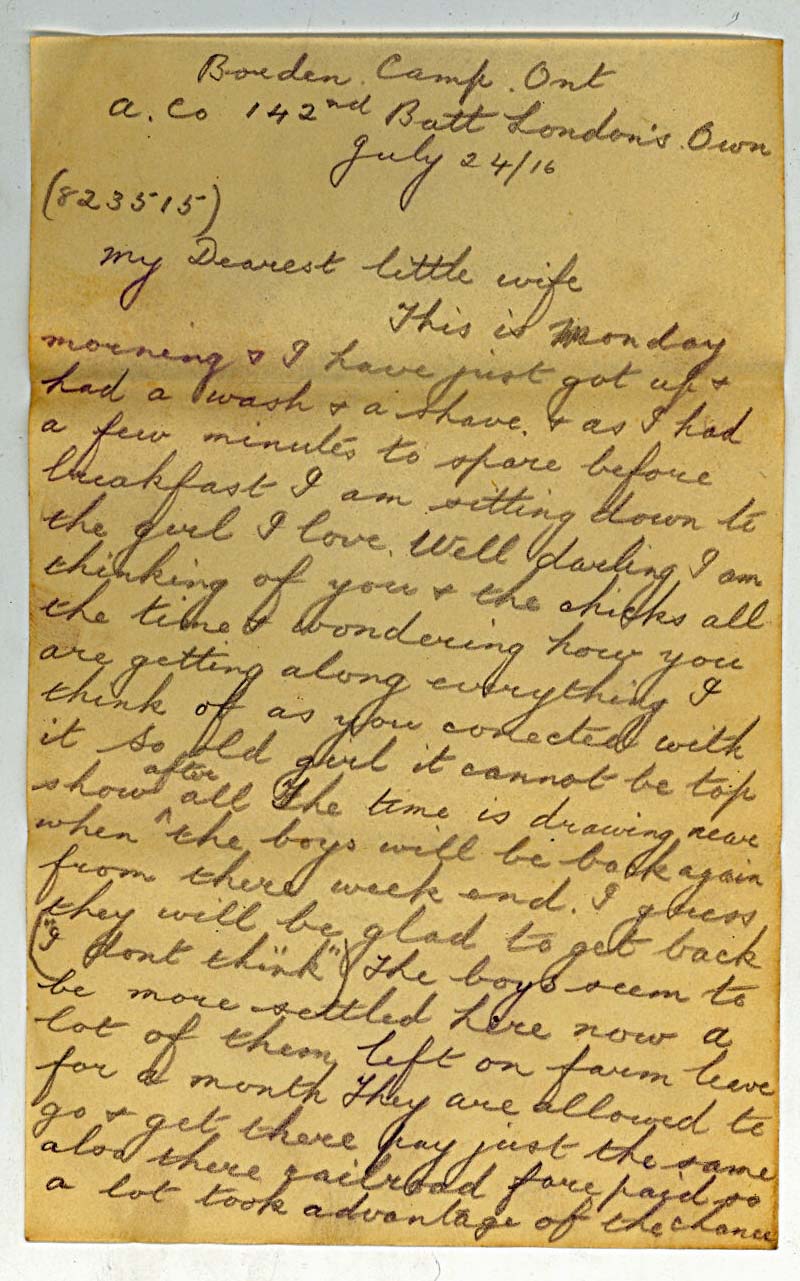 Borden Camp. Ont
A. Co 142nd Batt London's Own
July 24/16
(823515)
My Dearest little wife
This is Monday
morning & I have just got up &
had a wash & a shave. & as I had
a few minutes to spare before
breakfast I am sitting down to
the girl I love. Well darling I am
thinking of you & the chicks all
the time & wondering how you
are getting along everything I
think of as you conected with
it so old girl it cannot be top
show after all The time is drawing near
when the boys will be back again
from there week end. I guess
they will be glad to get back
("I dont think") The boys seem to
be more settled here now a
lot of them left on farm leave
for a month They are allowed to
go & get there pay just the same
also there railroad fare paid so
a lot took advantage of the chance